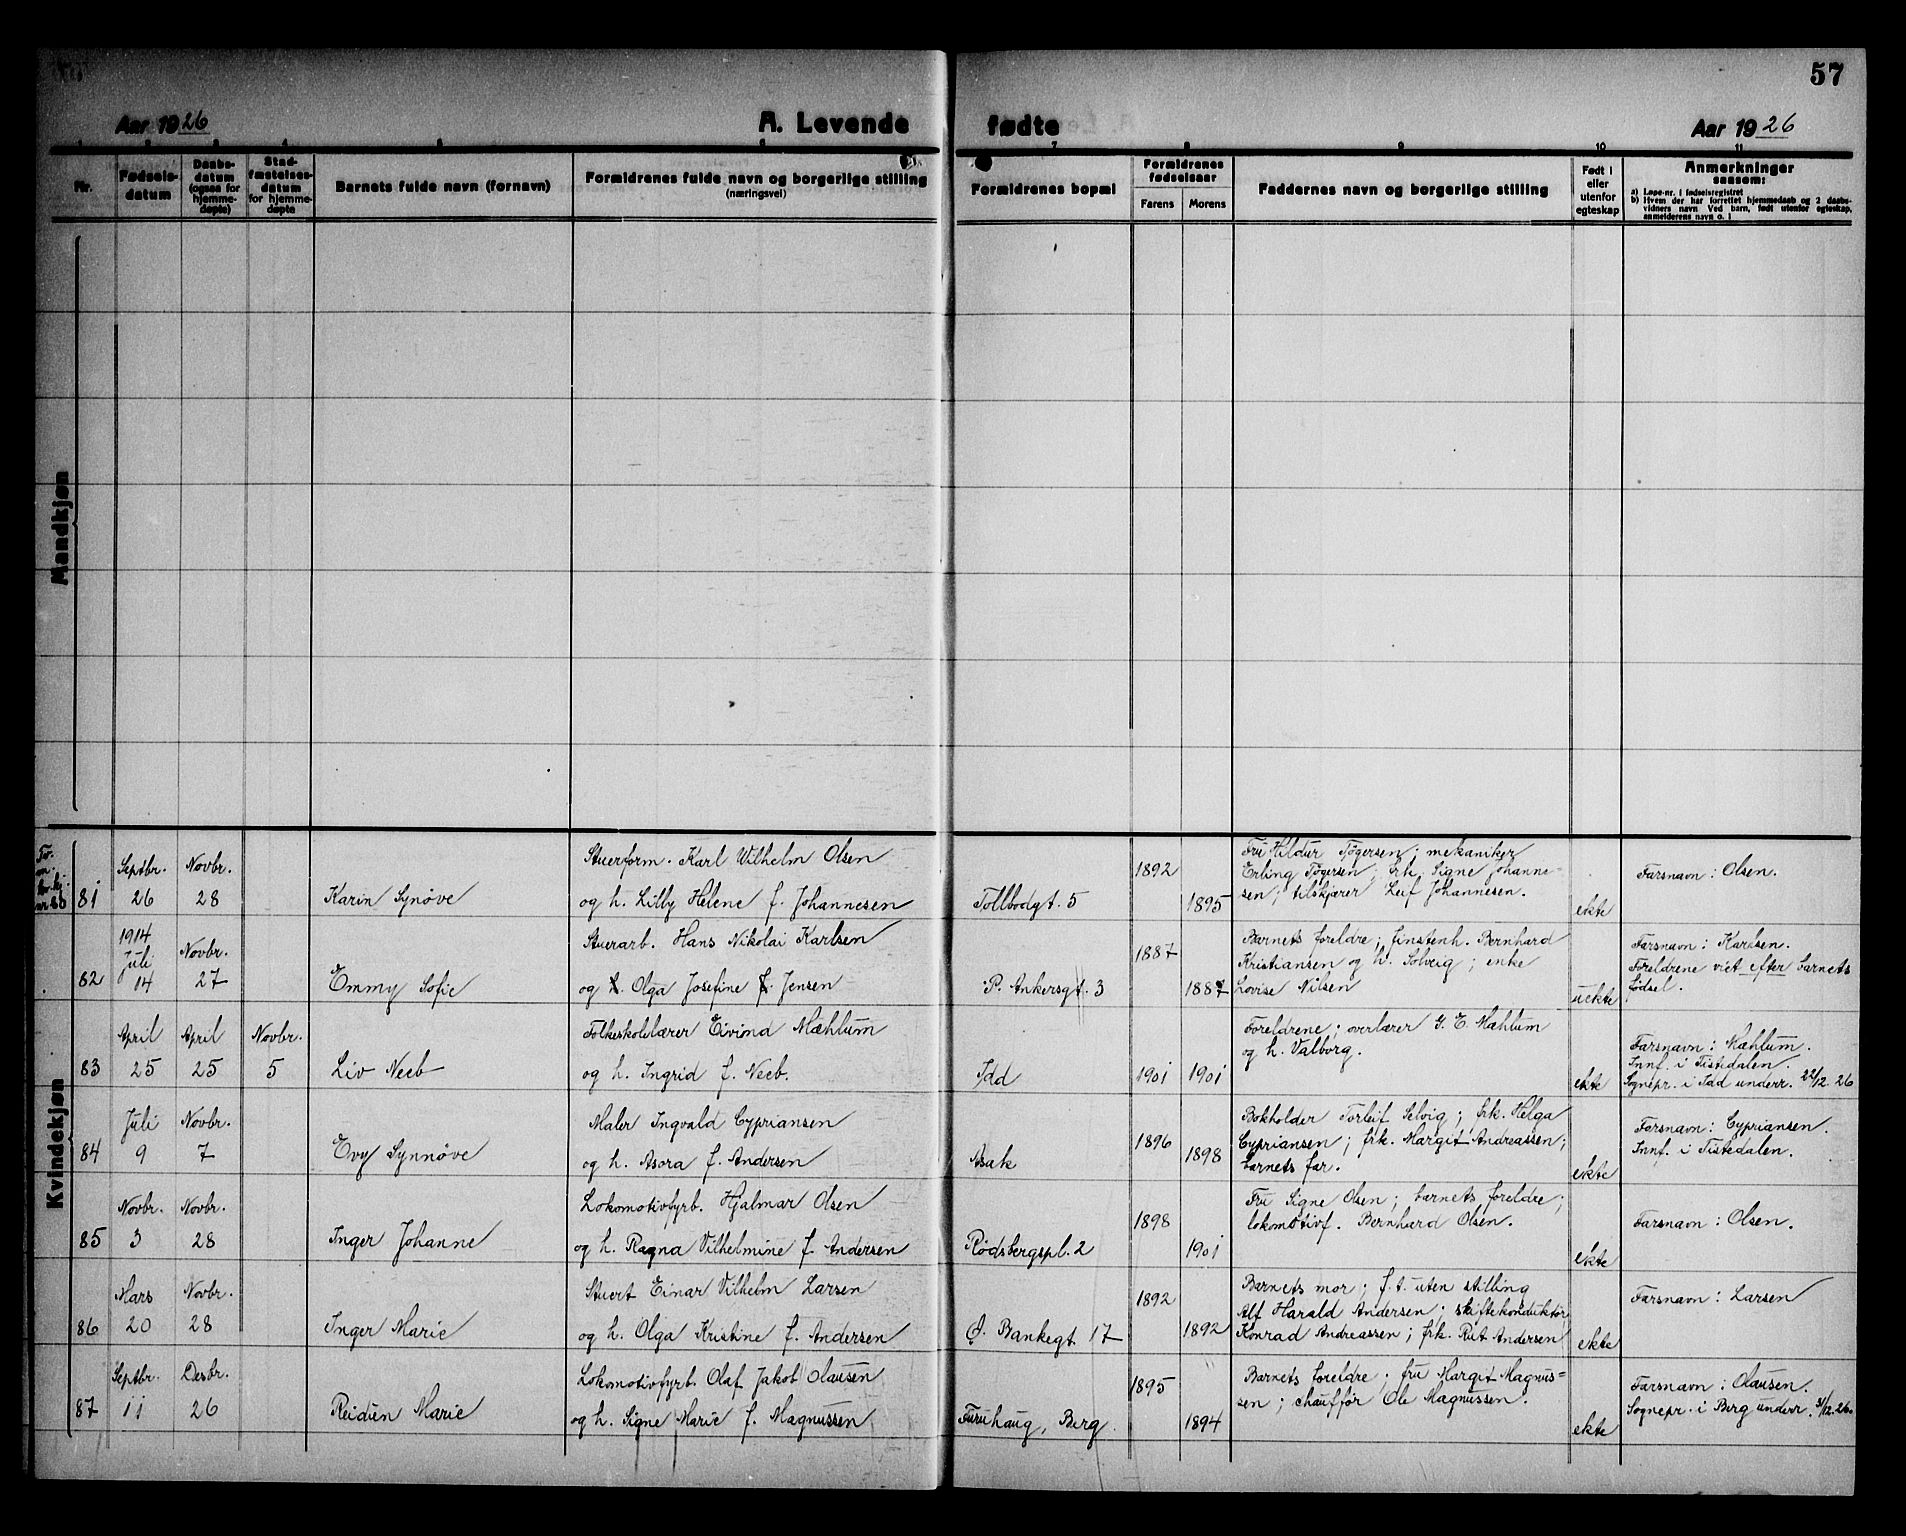 57
Aar 1926
A. Levende
fødte
Aar 1926
7 8 9 10 11
Nr.
Fødsels-
datum
Daabs-
datum
(ogsaa for
hjemme-
døpte)
Stad-
fæstelses-
datum
for hjemme-
døpte
Barnets fulde navn (fornavn)
Forældrenes fulde navn og borgerlige stilling
(næringsvei)
Forældrenes bopæl
Forældrenes
fødselsaar
Farens
Morens
Faddernes navn og borgerlige stilling
Født i
eller
utenfor
egteskap
Anmerkninger
saasom:
a) Løpe-nr. i fødselsregistret
b) Hvem der har forrettet hjemmedaab og 2 daabs-
vidners navn Ved barn, født utenfor egteskap,
anmelderens navn o. l
Mandkjøn
Kvindekjøn
81
Septbr.
26
Novbr.
28
Karin Synøve
Stuerform. Karl Wilhelm Olsen
og h. Lilly Helene f. Johannesen
Tollbodgt. 5
1892
1895
Fru Hildur Tøgersen; mekaniker
Erling Tøgersen; frk. Signe Johanne-
sen; tilskjærer Leif Johannesen.
ekte
Farsnavn: Olsen.
82
1914
Juli
14
Novbr.
27
Emmy Sofie
Stuerarb. Hans Nikolai Karlsen
og Olga Josefine Jensen
P. Ankersgt. 3
1887
1887
Barnets foreldre; finstenh. Bernhard
Kristiansen og h. Solveig; enke
Lovise Nilsen
uekte
Farsnavn: Karlsen.
Foreldrene viet efter barnets
fødsel.
83
April
25
April
25
Novbr.
5
Liv Neeb
Folkeskolelærer Eivind Mæhlum
og h. Ingrid f. Neeb.
Idd
1901
1901
Foreldrene; overlærer G. E. Mæhlum
og h. Valborg.
ekte
Farsnavn: Mæhlum.
Innf. i Tistedalen.
Sognepr. i Idd underr. 22/12. 26
84
Juli
9
Novbr.
7
Evy Synnøve
Maler Ingvald Cypriansen
og h. Asora f. Andersen
Asak
1896
1898
Bokholder Torleif Selvig; frk. Helga
Cypriansen; frk. Margit Andreassen;
barnets far.
ekte
Farsnavn: Cypriansen.
Innf. i Tistedalen.
85
Novbr.
3
Novbr.
28
Inger Johanne
Lokomotivfyrb. Hjalmar Olsen
og h. Ragna Vilhelmine f. Andersen
Rødsbergspl. 2
1898
1901
Fru Signe Olsen; barnets foreldre;
lokomotivf. Bernhard Olsen.
ekte
Farsnavn: Olsen.
86
Mars
20
Novbr.
28
Inger Marie
Stuert Einar Vilhelm Larsen
og h. Olga Kristine f. Andersen
O. Bankegt 17
1892
1892
Barnets mor; f. t. uten stilling
Alf Harald Andersen; skiftekonduktør
Konrad Andreassen; frk. Rut Andersen
ekte
Farsnavn: Larsen
87
Septbr.
11
Desbr.
26
Reidun Marie
Lokomotivfyrb. Olaf Jakob Olausen
og h. Signe Marie f. Magnussen
Furuhaug, Berg.
1895
1894
Barnets foreldre; fru Margit Magnus=
sen; chauffør Ole Magnussen.
ekte
Farsnavn: Olausen.
Sognepr. i Berg underr. 31/12. 26.